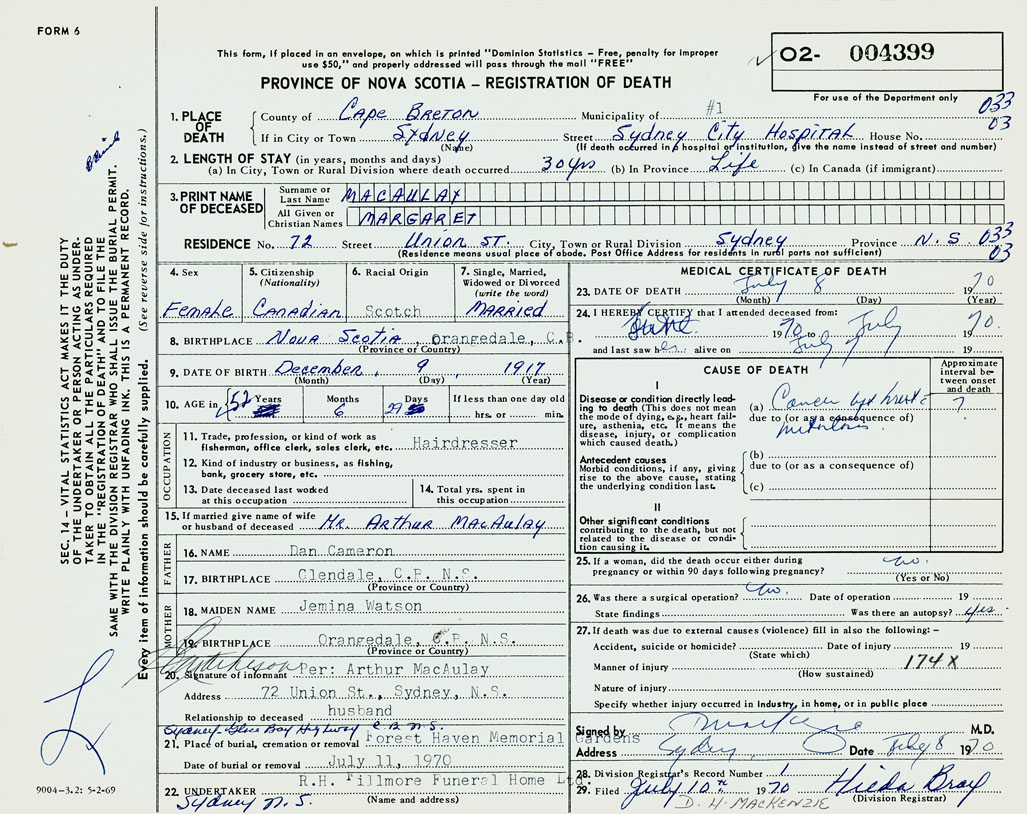 FORM 6
This form, if placed in an envelope, on which is printed "Dominion Statistics – Free, penalty for improper
use $50," and properly addressed will pass through the mail "FREE"
PROVINCE OF NOVA SCOTIA – REGISTRATION OF DEATH
O2- 004399
For use of the Department only
SEC. 14 – VITAL STATISTICS ACT MAKES IT THE DUTY
OF THE UNDERTAKER OR PERSON ACTING AS UNDER-
TAKER TO OBTAIN ALL THE PARTICULARS REQUIRED
IN THE "REGISTRATION OF DEATH" AND TO FILE THE
SAME WITH THE DIVISION REGISTRAR WHO SHALL ISSUE THE BURIAL PERMIT.
WRITE PLAINLY WITH UNFADING INK. THIS IS A PERMANENT RECORD.
Every item of information should be carefully supplied. (See reverse side for instructions.)
9004–3.2: 5-2-69
1. PLACE OF DEATH
County of Cape Breton Municipality of #1 033
If in City or Town Sydney Street Sydney City Hospital House No. 03
(Name) (If death occurred in a hospital or institution, give the name instead of street and number)
2. LENGTH OF STAY (in years, months and days)
(a) In City, Town or Rural Division where death occurred 30 yrs (b) In Province Life (c) In Canada (if immigrant)
3. PRINT NAME OF DECEASED
Surname or Last Name MACAULAY
All Given or Christian Names MARGARET
RESIDENCE No. 72 Street Union St. City, Town or Rural Division Sydney Province N.S 033
(Residence means usual place of abode. Post Office Address for residents in rural parts not sufficient) 03
4. Sex Female
5. Citizenship (Nationality) Canadian
6. Racial Origin Scotch
7. Single, Married, Widowed or Divorced (write the word) Married
8. BIRTHPLACE Nova Scotia, Orangedale, C.B.
(Province or Country)
9. DATE OF BIRTH December 9 1917
(Month) (Day) (Year)
10. AGE in 52 Years Months 6 Days 29 If less than one day old hrs. or min.
OCCUPATION
11. Trade, profession, or kind of work as
fisherman, office clerk, sales clerk, etc. Hairdresser
12. Kind of industry or business, as fishing,
bank, grocery store, etc.
13. Date deceased last worked
at this occupation
14. Total yrs. spent in
this occupation
15. If married give name of wife
or husband of deceased Mr. Arthur MacAulay
FATHER
16. NAME Dan Cameron
17. BIRTHPLACE Glendale, C.B. N.S.
(Province or Country)
MOTHER
18. MAIDEN NAME Jemina Watson
19. BIRTHPLACE Orangedale, C.B. N.S.
(Province or Country)
20. Signature of informant Per: Arthur MacAulay
Address 72 Union St., Sydney, N.S.
Relationship to deceased husband
Sydney-Glace Bay Highway C.B. N.S.
21. Place of burial, cremation or removal Forest Haven Memorial Gardens
Date of burial or removal July 11, 1970
22. UNDERTAKER R.H. Fillmore Funeral Home Ltd.
Sydney N.S. (Name and address)
MEDICAL CERTIFICATE OF DEATH
23. DATE OF DEATH July 8 1970
(Month) (Day) (Year)
24. I HEREBY CERTIFY that I attended deceased from:
June 1970 to July 1970.
and last saw her alive on July 7 19
CAUSE OF DEATH
Approximate interval between onset and death
I
Disease or condition directly lead-
ing to death (This does not mean
the mode of dying, e.g., heart fail-
ure, asthenia, etc. It means the
disease, injury, or complication
which caused death.)
(a) Cancer ?
due to (or as a consequence of)
Antecedent causes
Morbid conditions, if any, giving
rise to the above cause, stating
the underlying condition last.
(b)
due to (or as a consequence of)
(c)
II
Other significant conditions
contributing to the death, but not
related to the disease or condi-
tion causing it.
25. If a woman, did the death occur either during
pregnancy or within 90 days following pregnancy? no.
(Yes or No)
26. Was there a surgical operation? no. Date of operation 19
State findings Was there an autopsy? yes
27. If death was due to external causes (violence) fill in also the following: –
Accident, suicide or homicide? Date of injury 19
(State which)
Manner of injury 174X
(How sustained)
Nature of injury
Specify whether injury occurred in Industry, in home, or in public place
Signed by M.D.
Address Sydney, Date July 8 1970
28. Division Registrar's Record Number 1
29. Filed July 10th 1970 Hilda Bray
D. H. MACKENZIE (Division Registrar)